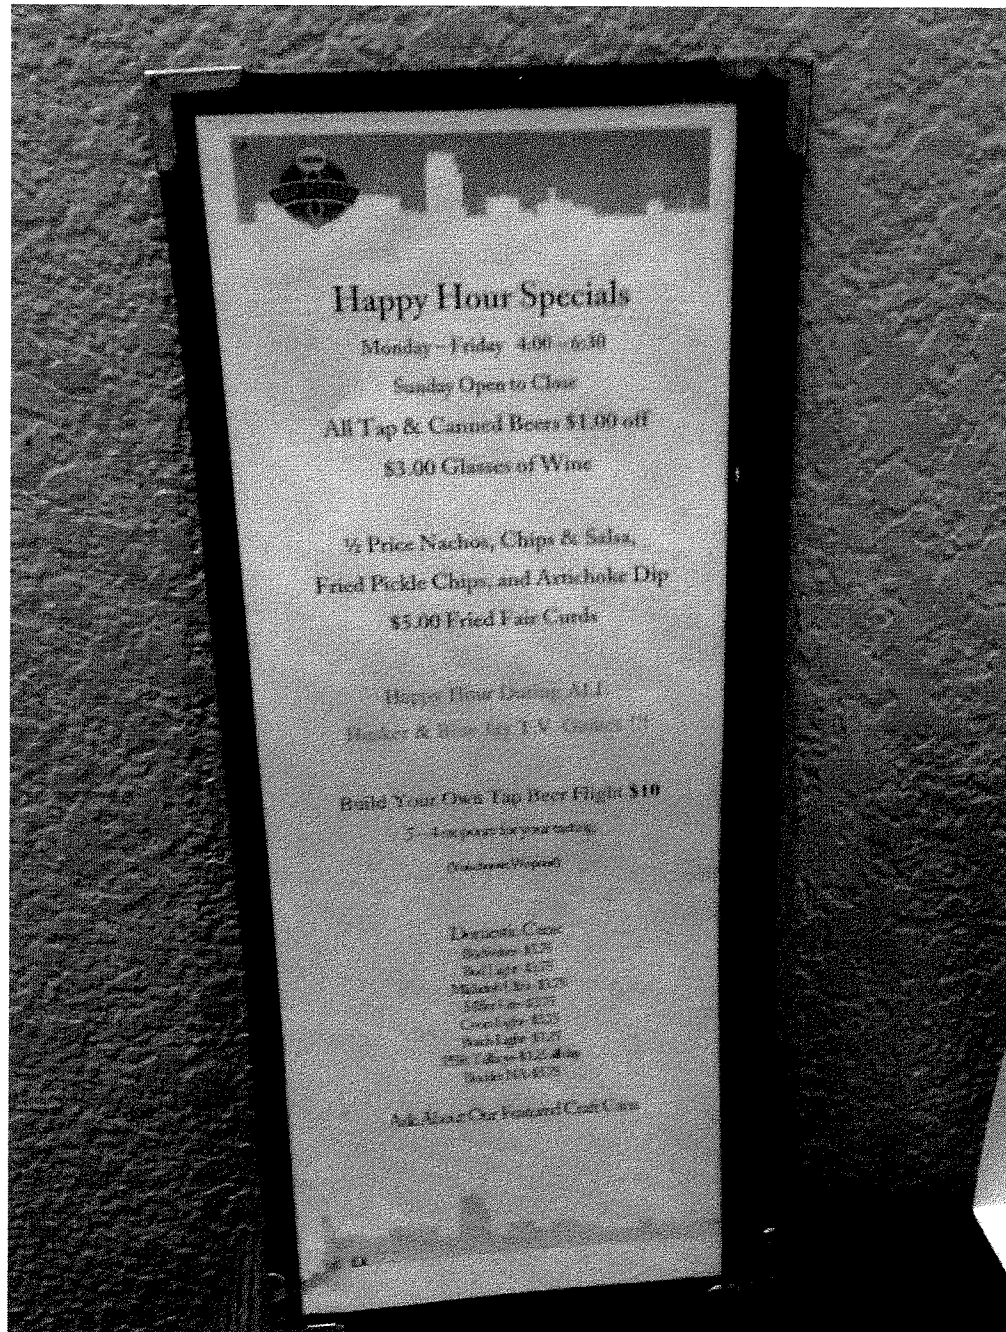 Happy Hour Specials
Monday - Friday 4:00 - 6:30
Sunday Open to Close
All Tap & Canned Beers $1.00 off
$3.00 Glasses of Wine
½ Price Nachos, Chips & Salsa,
Fried Pickle Chips, and Artichoke Dip
$5.00 Fried Fair Curds
Happy Hour During ALL
Husker & Blue Jay T.V. Games !!!
Build Your Own Tap Beer Flight $10
5 - 4 oz pours for your tasting
Domestic Cans
Budweiser
Bud Light
Michelob Ultra
Miller Lite
Coors Light
Busch Light
Ask About Our Featured Craft Cans